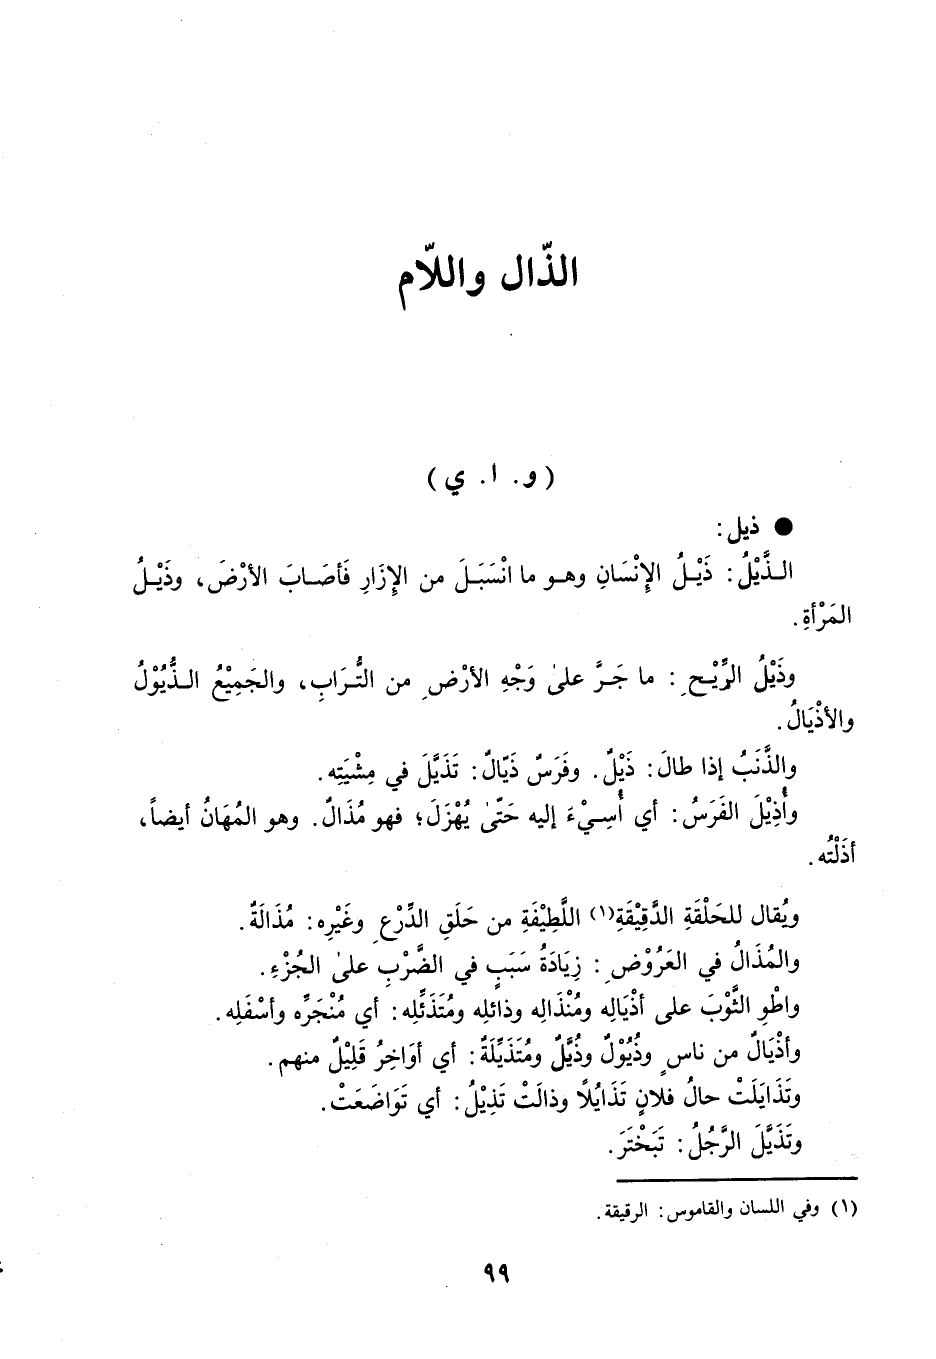 الذّال واللّام
(و. ا. ي)
● ذيل:
الـذَّيْلُ: ذَيْـلُ الإِنْسَانِ وهـو ما انْسَبَـلَ من الإِزَارِ فَأصَـابَ الأرْضَ، وذَيْـلُ
المَرْأةِ.
وذَيْلُ الرِّيْـحِ: ما جَـرَّ علىٰ وَجْهِ الأرْضِ من التُّـرَابِ، والجَمِيْعُ الـذُّيُوْلُ
والأذْيَالُ.
والذَّنَبُ إذا طالَ: ذَيْلٌ. وفَرَسٌ ذَيّالٌ: تَذَيَّلَ في مِشْيَتِه.
وأُذِيْلَ الفَرَسُ: أي أُسِـيْءَ إليه حَتّىٰ يُهْزَلَ؛ فهو مُذَالٌ. وهو المُهَانُ أيضاً،
أذَلْتُه.
ويُقال للحَلْقَةِ الدَّقِيْقَةِ(١) اللَّطِيْفَةِ من حَلَقِ الدِّرْعِ وغَيْرِه: مُذَالَةٌ.
والمُذَالُ في العَرُوْضِ: زِيَادَةُ سَبَبٍ في الضَّرْبِ علىٰ الجُزْءِ.
واطْوِ الثَّوْبَ على أذْيَالِه ومُنْذَالِه وذائلِه ومُتَذَئِّلِه: أي مُنْجَرِّه وأسْفَلِه.
وأذْيَالٌ من ناسٍ وذُيُوْلٌ وذُيَّلٌ ومُتَذَيِّلَةٌ: أي أوَاخِرُ قَلِيْلٌ منهم.
وتَذَايَلَتْ حالُ فلانٍ تَذَايُلاً وذالَتْ تَذِيْلُ: أي تَوَاضَعَتْ.
وتَذَيَّلَ الرَّجُلُ: تَبَخْتَرَ.
(١) وفي اللسان والقاموس: الرقيقة.
٩٩